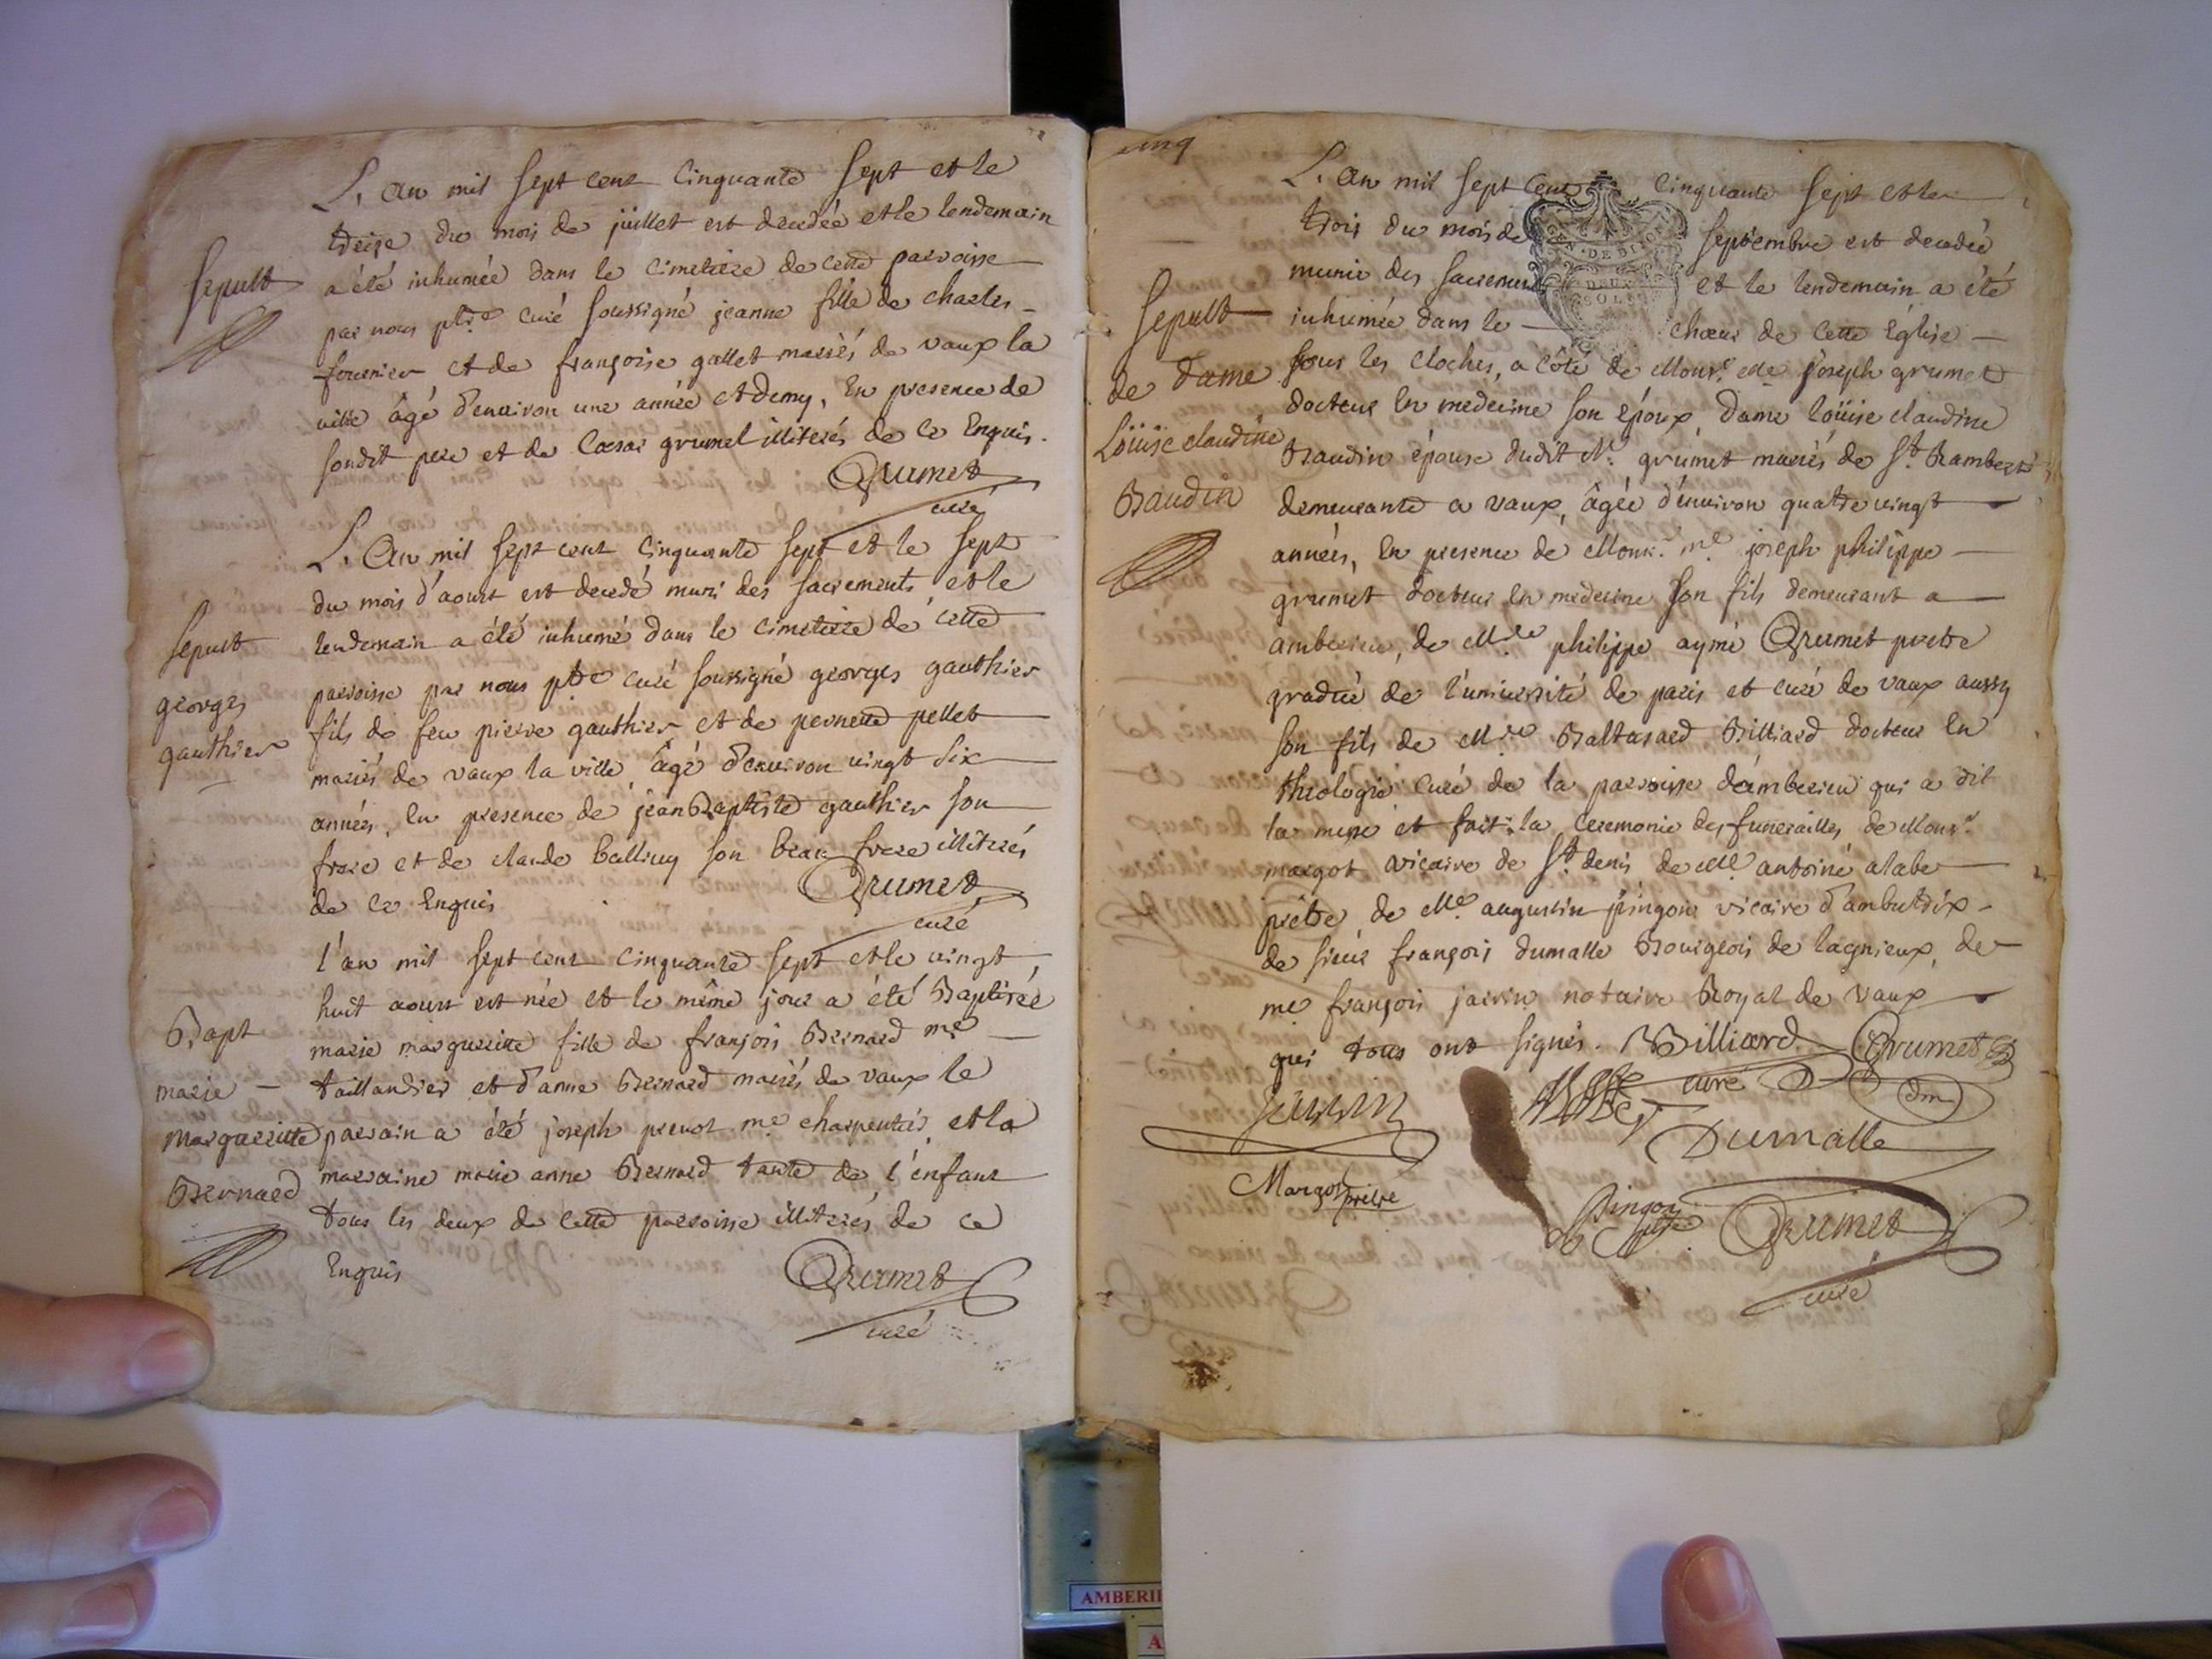 L'an mil sept cent cinquante sept et le
treize du mois de juillet est decedée et le lendemain
sepult a été inhumée dans le cimetiere de cette paroisse
par nous ptre curé soussigné jeanne fille de charles
fournier et de françoise gallet mariés de vaux la
ville âgé d'environ une année et demy, en presence de
sondit pere et de Cæsar grumel illiterés de ce enquis.
Grumet
curé
L'an mil sept cent cinquante sept et le sept
du mois d'aoust est decedé muni des sacrements et le
sepult lendemain a été inhumé dans le cimetiere de cette
georges paroisse par nous ptre curé soussigné georges gauthier
gauthier fils de feu pierre gauthier et de pernette pellet
mariés de vaux la ville âgé d'environ vingt six
années, en presence de jean Baptiste gauthier son
frere et de claude balliuy son beau frere illiterés
de ce enquis
Grumet
curé
l'an mil sept cent cinquante sept et le vingt
huit aoust est née et le même jour a été Baptisée
Bapt marie marguerite fille de françois Bernard me
marie taillandier et d'anne Bernard mariés de vaux le
marguerite parrain a été joseph prenot me charpentier, et la
Bernard marraine marie anne Bernard tante de l'enfant
tous les deux de cette paroisse illiterés de ce
enquis
Grumet
curé
cinq
L'an mil sept cent cinquante sept et le
trois du mois de septembre est decedée
munie des sacrements et le lendemain a été
GEN. DE DIJON
DEUX
SOLS
sepult inhumée dans le chœur de cette église
de dame sous les cloches, a côté de Monsr. me joseph grumet
Loüise claudine docteur en medecine son époux, dame loüise claudine
Baudin Baudin épouse dudit Sr. grumet mariés de St. Rambert
demeurante a vaux, âgée d'environ quatre vingt
années, en presence de Monsr. me joseph philippe
grumet docteur en medecine son fils demeurant a
amberieu, de Mre philippe aymé Grumet pretre
gradué de l'université de paris et curé de vaux aussy
son fils de Mre Baltasard Billiard docteur en
theologie curé de la paroisse d'amberieu qui a dit
la messe et fait la ceremonie des funerailles de Monsr.
margot vicaire de St. denis de Me antoine alabe
prêtre, de Me. augustin pingon vicaire d'ambutrix
de sieur françois dumalle Bourgeois de lagnieux, de
me françois janin notaire Royal de vaux
qui tous ont signés. Billiard Grumet
curé dm
Dumalle
Margot prêtre
Pingon
ptre
Grumet
curé
AMBERI
A